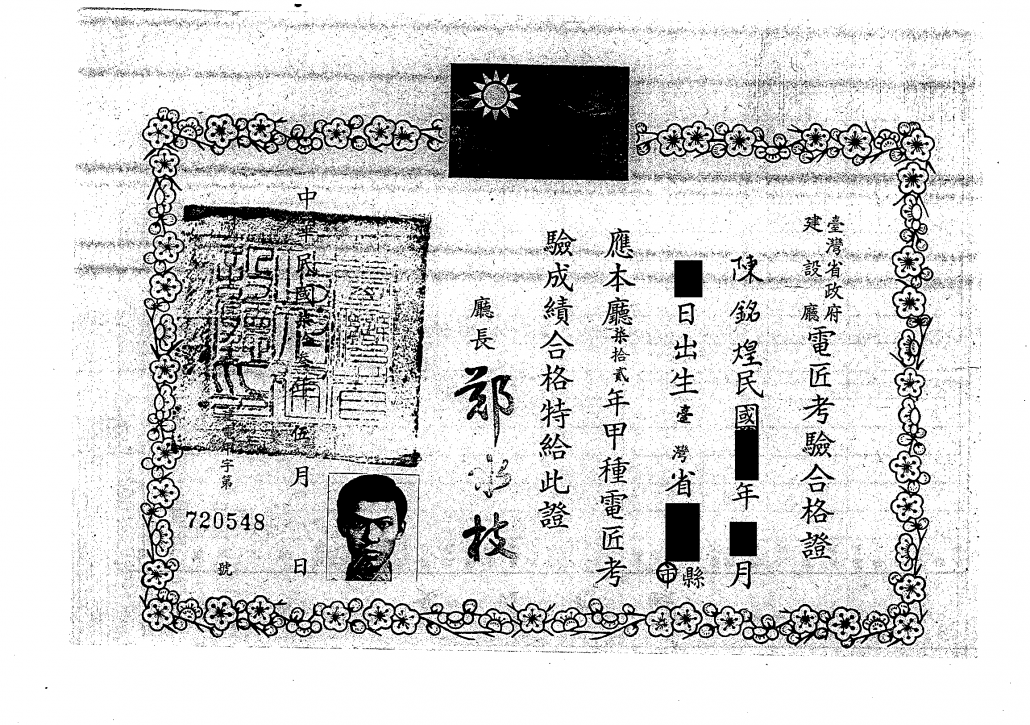 臺灣省政府
建設廳
電匠考驗合格證
陳銘煌民國年月
日出生臺灣省縣市
應本廳柒拾貳年甲種電匠考
驗成績合格特給此證
廳長 鄭水枝
中華民國柒拾叁年伍月日
字第
720548
號